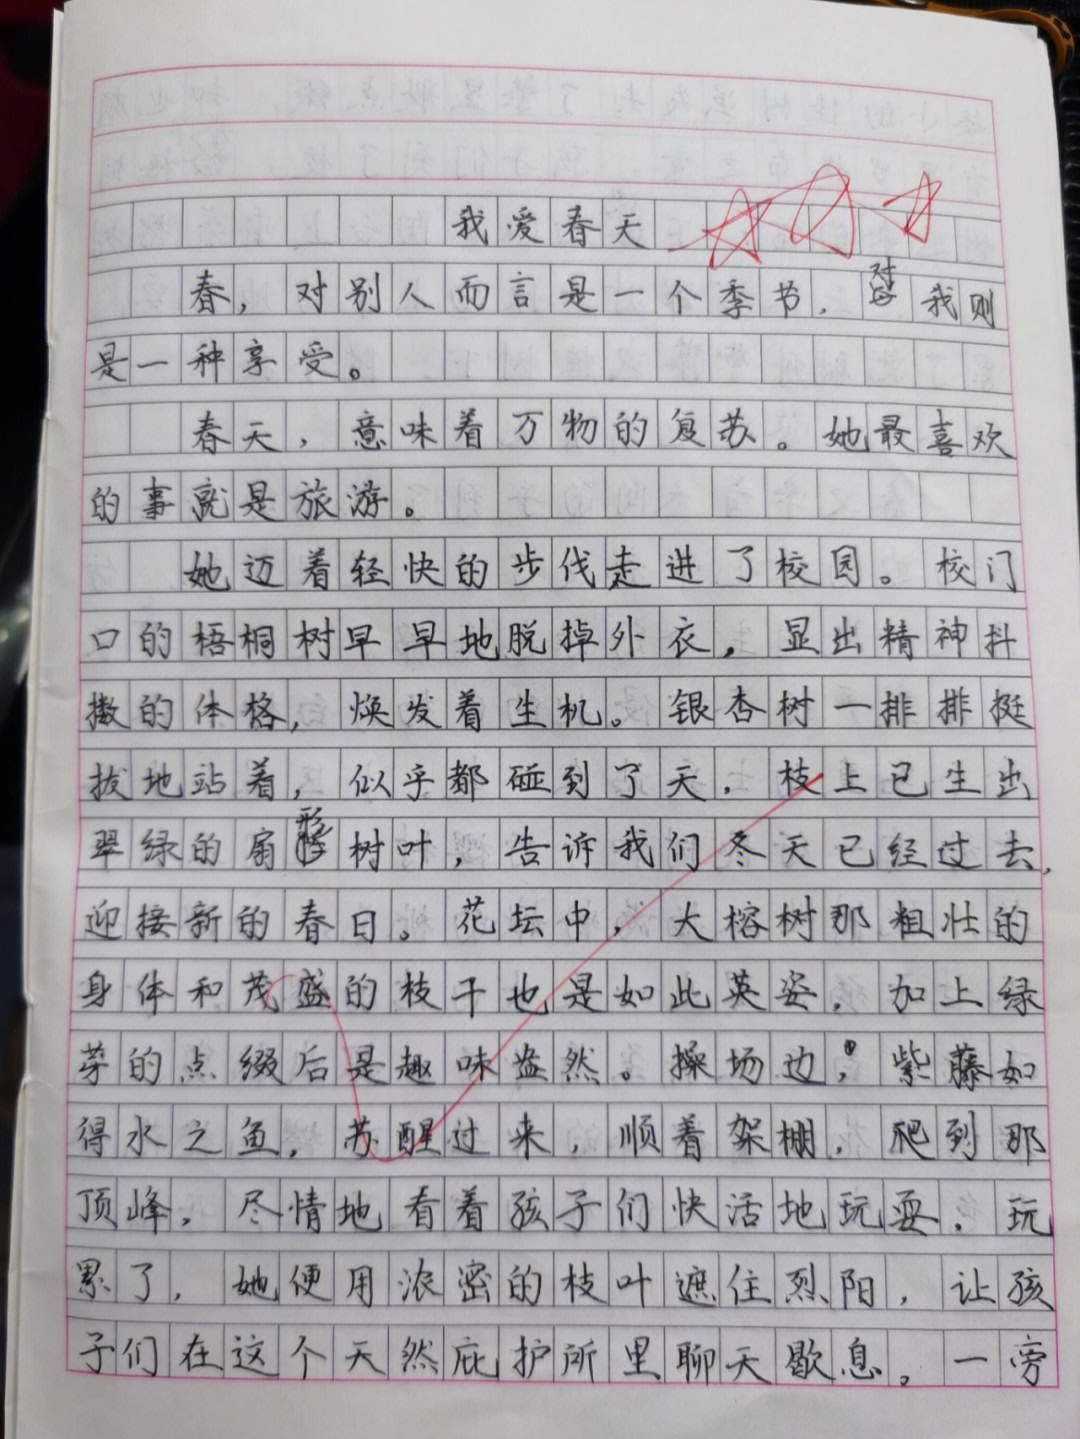 我爱春天
春，对别人而言是一个季节，对我则
是一种享受。
春天，意味着万物的复苏。她最喜欢
的事就是旅游。
她迈着轻快的步伐走进了校园。校门
口的梧桐树早早地脱掉外衣，显出精神抖
擞的体格，焕发着生机。银杏树一排排挺
拔地站着，似乎都碰到了天，枝上已生出
翠绿的扇形树叶，告诉我们冬天已经过去，
迎接新的春日。花坛中，大榕树那粗壮的
身体和茂盛的枝干也是如此英姿，加上绿
芽的点缀后是趣味盎然。操场边，紫藤如
得水之鱼，苏醒过来，顺着架棚，爬到那
顶峰，尽情地看着孩子们快活地玩耍，玩
累了，她便用浓密的枝叶遮住烈阳，让孩
子们在这个天然庇护所里聊天歇息。一旁